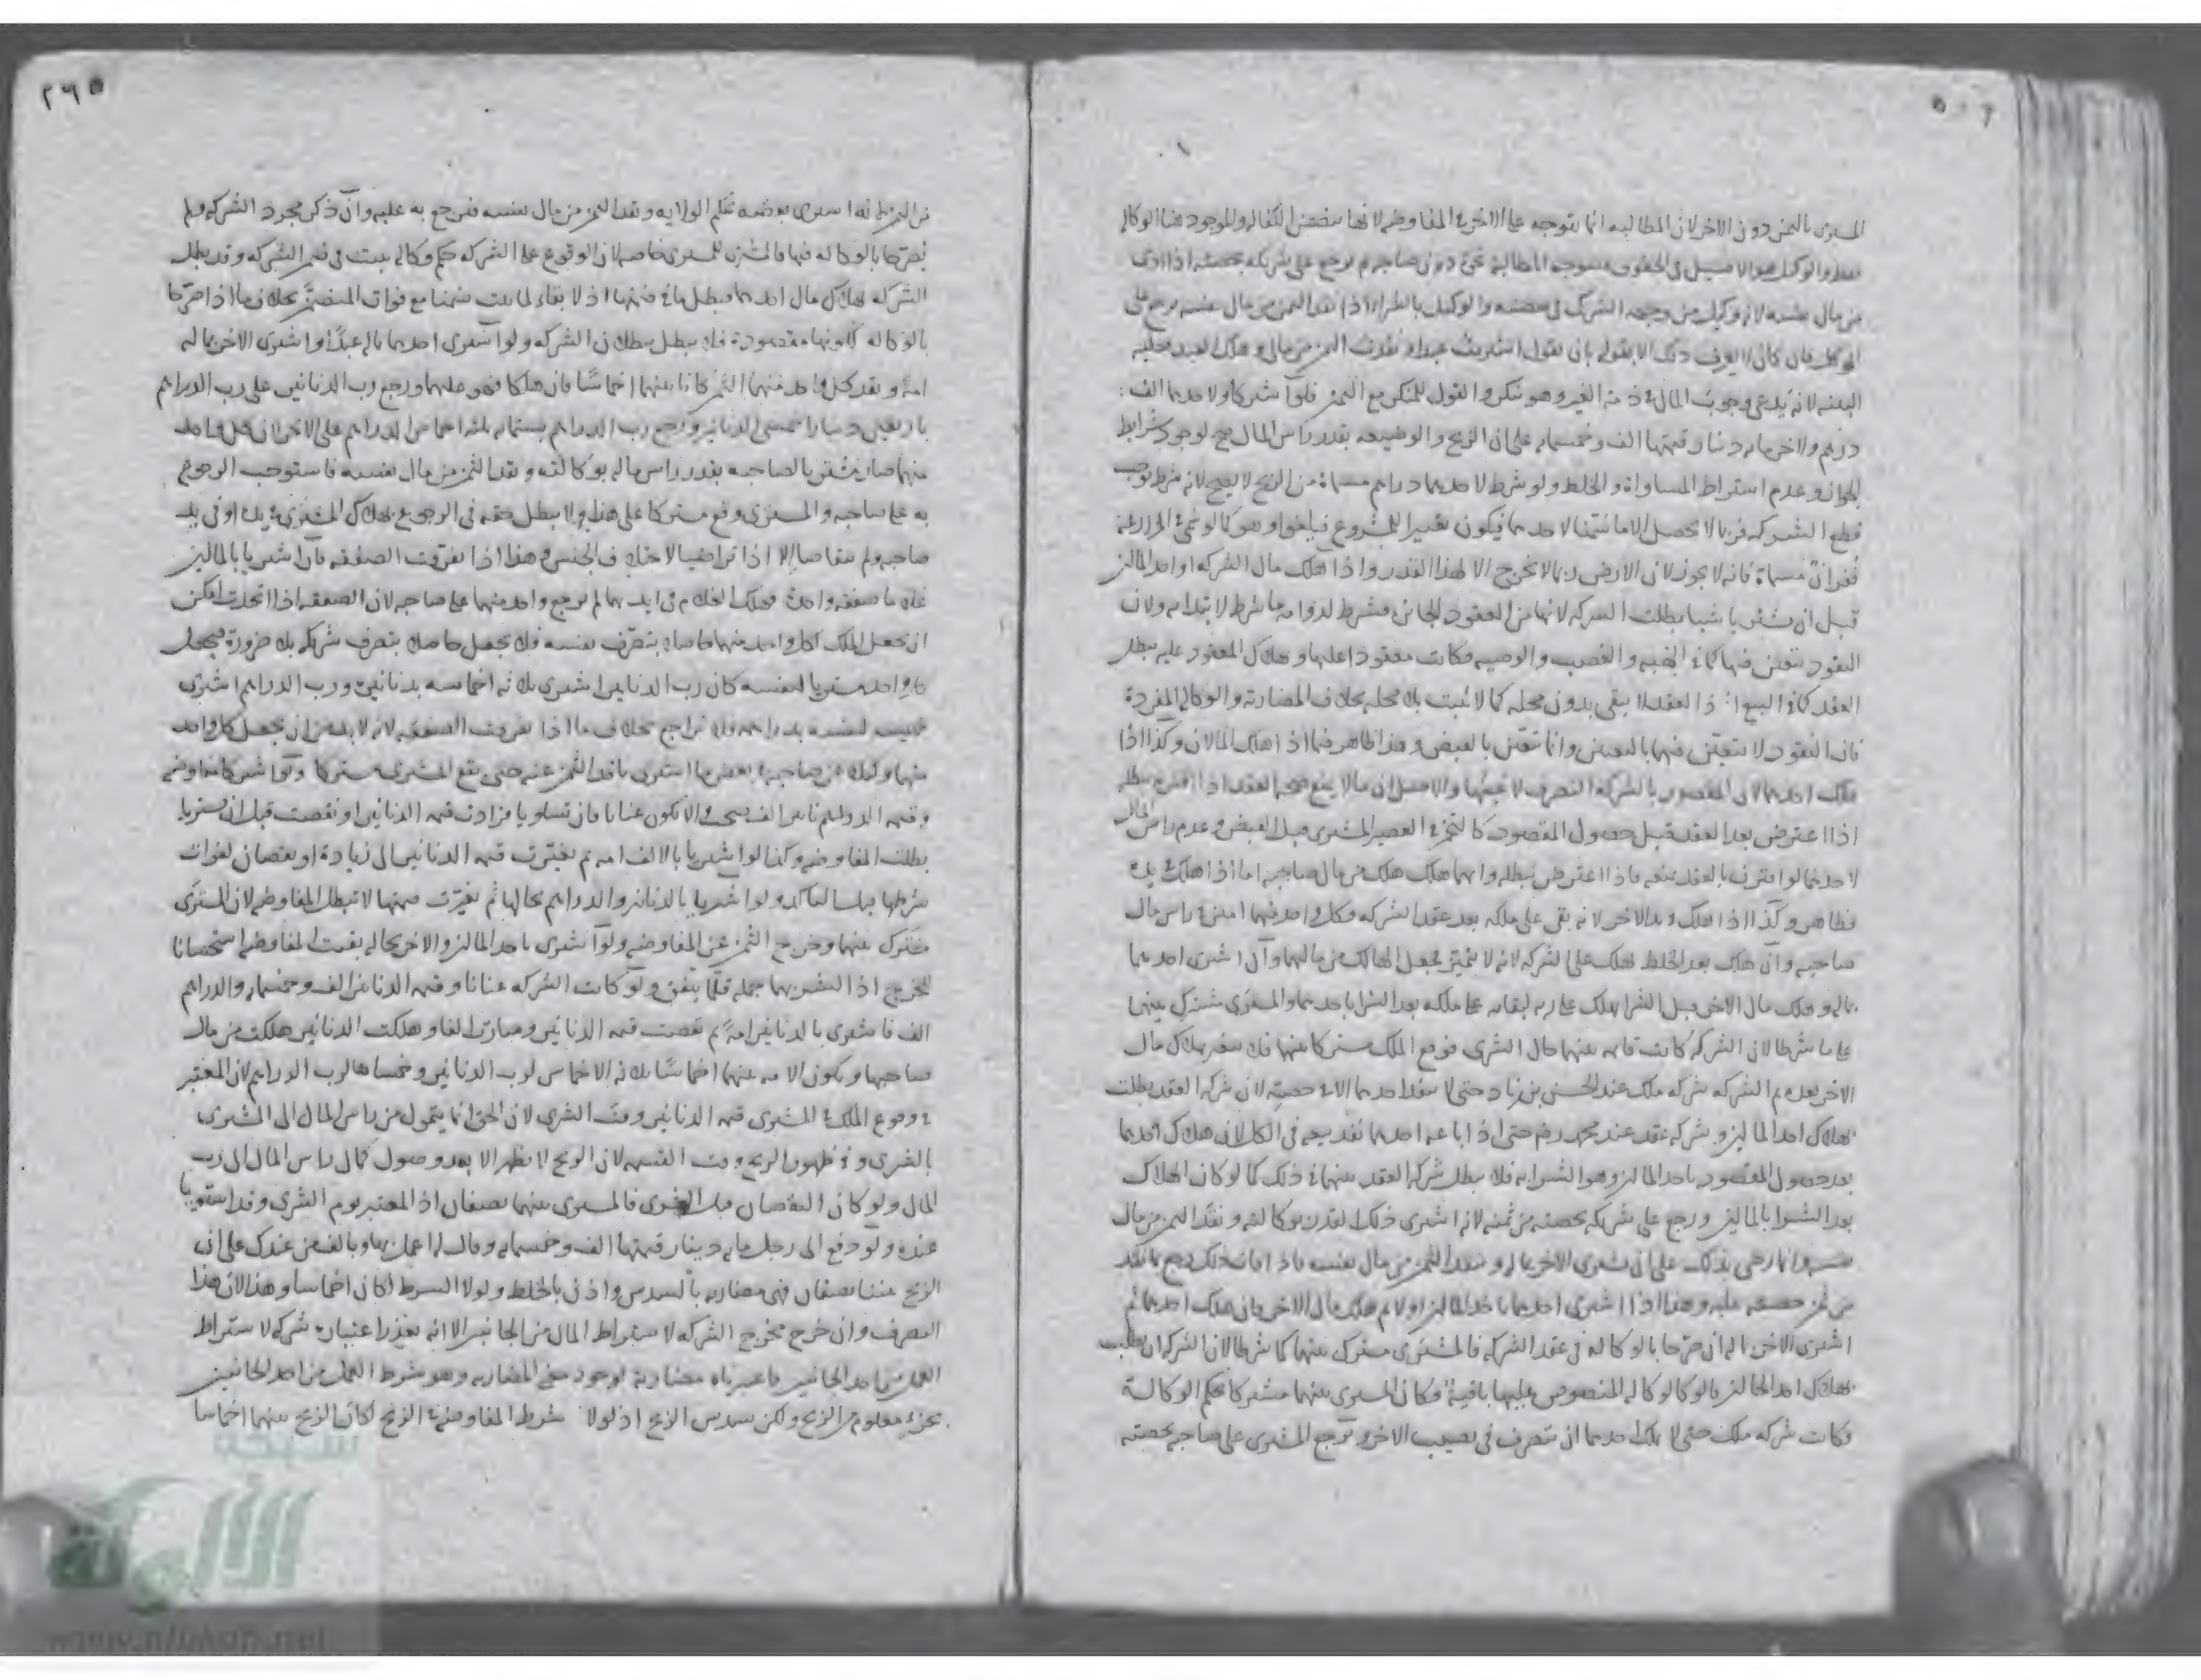 المشترى بالثمن دون الاخر لان المطالبة انما تتوجه على الاخر فى المفاوضه لانها تتضمن الكفاله والموجود هنا الوكاله
والوكيل هو الاصيل فى الحقوق فتتوجه المطالبة نحوه دون صاحبه ثم يرجع على شريكه بحصته اذا ادى
من مال نفسه لانه وكيل من وجهة الشريك فى حصته والوكيل بالشراء اذا نقد الثمن من مال نفسه يرجع على
الموكل فان كان لا يعرف ذلك الا بقوله بان يقول اشتريت عبدا ونقدت الثمن من مالى وهلك العبد فعليه
البينه لانه يدعى وجوب المال فى ذمة الغير وهو منكر والقول للمنكر مع اليمين فلو اشتركا ولاحدهما الف
درهم وللاخر مايه دينار قيمتها الف وخمسمايه على ان الربح والوضيعه بقدر راس المال صح لوجود شرايط
الجواز وعدم اشتراط المساواة والخلط ولو شرط لاحدهما دراهم مسماة من الربح لا يصح لانه شرط يوجب
قطع الشركه فربما لا يحصل الا ما سميا لاحدهما فيكون تغييرا للمشروع فيلغوا وهو كما لو سمى فى المزارعه
قفزانا مسماة فانه لا يجوز لان الارض ربما لا تخرج الا لهذا القدر واذا هلك مال الشركه او احد المالين
قبل ان يشتريا شيئا بطلت الشركه لانها من العقود الجائزه فشرط لدوامه ما شرط لابتدايه ولان
النقود تتعين فيها كما فى الهبه والغصب والوصيه فكانت معقودا عليها وهلاك المعقود عليه يبطل
العقد كما فى البيع اذ العقد لا يبقى بدون محله كما لا يثبت بلا محله بخلاف المضاربة والوكاله المفردة
فان النقود لا تتعين فيها بالتعيين وانما تتعين بالقبض وهذا ظاهر فيما اذا هلك المالان وكذا اذا
هلك احدهما لان المقصود بالشركه التصرف لا عينها والاصل ان ما لا يمنع صحة العقد اذا اقترن به يبطله
اذا اعترض بعد العقد قبل حصول المقصود كالتخمر فى العصير المشترى قبل القبض وعدم راس المال
لاحدهما لو اقترن بالعقد يمنعه فاذا اعترض يبطله وايهما هلك هلك من مال صاحبه اما اذا هلك فى يده
فظاهر وكذا اذا هلك فى يد الاخر لانه بقى على ملكه بعد عقد الشركه وكل واحد منهما امين فى راس مال
صاحبه وان هلك بعد الخلط هلك على الشركه لانه لا يتميز فيجعل الهالك من مالهما وان اشترى احدهما
بماله وهلك مال الاخر قبل الشرا يهلك على ربه لبقايه على ملكه بعد الشرا باحدهما والمشترى مشترك بينهما
على ما شرطا لان الشركه كانت قايمه بينهما حال الشرى فوقع الملك مشتركا بينهما فلا يتغير بهلاك مال
الاخر بعده ثم الشركه شركه ملك عند الحسن بن زياد حتى لا ينفذ احدهما الا فى حصته لان شركه العقد بطلت
بهلاك احد المالين وشركه عقد عند محمد رحم حتى اذا باعه احدهما نفذ بيعه فى الكل لان هلاك احدهما
بعد حصول المقصود باحد المالين وهو الشرا به فلا يبطل شركه العقد بينهما فى ذلك كما لو كان الهلاك
بعد الشرا بالمالين ورجع على شريكه بحصته من ثمنه لانه اشترى ذلك القدر بوكالته ونقد الثمن من مال
نفسه وانما رضى بذلك على ان يشترى الاخر بماله وينقد الثمن من مال نفسه فاذا فات ذلك رجع بما نقد
من ثمن حصته عليه وهذا اذا اشترى احدهما باحد المالين اولا ثم هلك مال الاخر فان هلك احدهما ثم
اشترى الاخر بماله ان صرحا بالوكاله فى عقد الشركه فالمشترى مشترك بينهما كما شرطا لان الشركه ان بطلت
بهلاك احد المالين فالوكاله المنصوص عليها باقية فكان المشترى بينهما مشتركا بحكم الوكالة
فكانت شركه ملك حتى لا يملك احدهما ان يتصرف فى نصيب الاخر ويرجع المشترى على صاحبه بحصته
٢٦٥
من الثمن لانه اشترى بعضه بحكم الولايه ونقد الثمن من مال نفسه فيرجع به عليه وان ذكرا مجرد الشركه ولم
يصرحا بالوكاله فيها فالمشترى للمشترى خاصه لان الوقوع على الشركه حكم وكاله يثبت فى ضمن الشركه وقد بطلت
الشركه بهلاك مال احدهما فبطل ما فى ضمنها اذ لا بقاء لما يثبت ضمنا مع فوات المتضمن بخلاف ما اذا صرحا
بالوكاله لكونها مقصودة فلا يبطل ببطلان الشركه ولو اشترى احدهما بماله عبدا واشترى الاخر بماله
امة ونقد كل واحد منهما الثمن كانا بينهما اخماسا فان هلكا فهو عليهما ورجع رب الدنانير على رب الدراهم
باربعين دينارا خمسى الدنانير ورجع رب الدراهم بستمايه ثلثة اخماس الدراهم على الاخر لان كل واحد
منهما صار مشتريا لصاحبه بقدر راس ماله بوكالته ونقد الثمن من مال نفسه فاستوجب الرجوع
به على صاحبه والمشترى وقع مشتركا على هذا ولا يبطل حقه فى الرجوع بهلاك المشترى فى يده او فى يد
صاحبه ولم يتقاصا الا اذا تراضيا لاختلاف الجنس وهذا اذا تفرقت الصفقه فان اشتريا بالمالين
غلاما صفقه واحدة فهلك الغلام فى ايديهما لم يرجع واحد منهما على صاحبه لان الصفقه اذا اتحدت امكن
ان يجعل الملك لكل واحد منهما حاصلا بتصرف نفسه فلا يجعل حاصلا بتصرف شريكه بلا ضرورة فيجعل
كل واحد مشتريا لنفسه كان رب الدنانير اشترى ثلاثه اخماسه بدنانيره ورب الدراهم اشترى
خمسيه لنفسه بدراهمه فلا تراجع بخلاف ما اذا تفرقت الصفقه لانه لا بد من ان يجعل كل واحد
منهما وكيلا عن صاحبه فى بعض ما اشترى ناقدا الثمن عنه حتى يقع المشترى مشتركا ولو اشتركا مفاوضه
وقيمه الدنانير الف صح والا تكون عنانا فان تساويا فزادت قيمه الدنانير او نقصت قبل ان يشتريا
بطلت المفاوضه وكذا لو اشتريا بالالف امه ثم تغيرت قيمه الدنانير الى زيادة او نقصان لفوات
شرطها ولو اشتريا بالدنانير والدراهم بحالها ثم تغيرت قيمتها لا تبطل المفاوضه لان المشترى
مشترك بينهما وخرج الثمن عن المفاوضه ولو اشترى باحد المالين والاخر بحاله بقيت المفاوضه استحسانا
للحرج اذ الشرى بهما جملة قلما يتفق ولو كانت الشركه عنانا وقيمه الدنانير الف وخمسمايه والدراهم
الف فاشترى بالدنانير امة ثم نقصت قيمه الدنانير وصارت الفا وهلكت الدنانير هلكت من مال
صاحبها ويكون الامه بينهما اخماسا ثلاثه الاخماس لرب الدنانير وخمساها لرب الدراهم لان المعتبر
فى وقوع الملك فى المشترى قيمه الدنانير وقت الشرى لان الحق انما يتحول من راس المال الى المشترى
بالشرى وفى ظهور الربح وقت القسمه لان الربح لا يظهر الا بعد وصول كمال راس المال الى رب
المال ولو كان النقصان قبل الشرى فالمشترى بينهما نصفان اذ المعتبر يوم الشرى وقد استويا
عنده ولو دفع الى رجل مايه دينار قيمتها الف وخمسمايه وقال له اعمل بها وبالف من عندك على ان
الربح بيننا نصفان فهى مضاربه بالسدس واذن بالخلط ولولا الشرط لكان اخماسا وهذا لان هذا
التصرف وان خرج مخرج الشركه لاشتراط المال من الجانبين الا انه تعذر اعتباره شركه لاشتراط
العمل من احد الجانبين فاعتبرناه مضاربة لوجود معنى المضاربه وهو شرط العمل من احد الجانبين
بجزء معلوم من الربح ولكن بسدس الربح اذ لولا شرط المفاوضه فى الربح لكان الربح بينهما اخماسا
شبكة
الألوكة
www.alukah.net